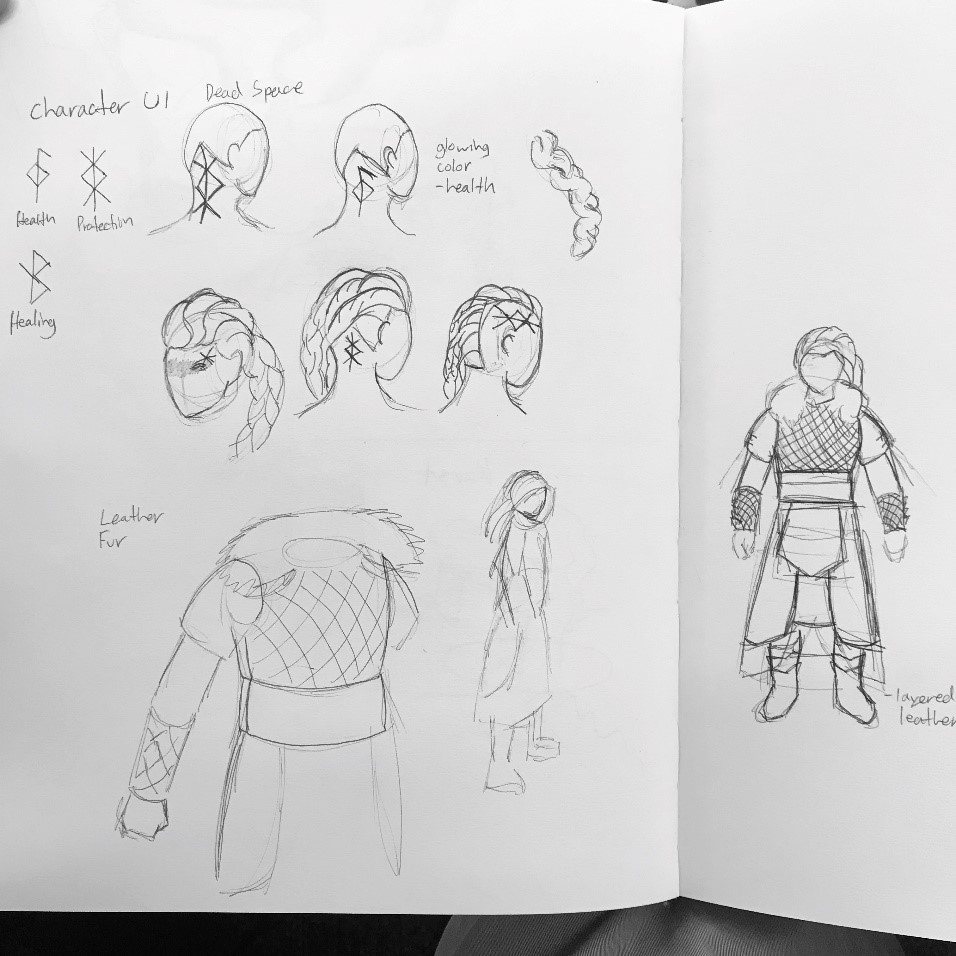 Character UI
Dead Space
Health
Protection
Healing
glowing
color
-health
Leather
Fur
-layered
leather